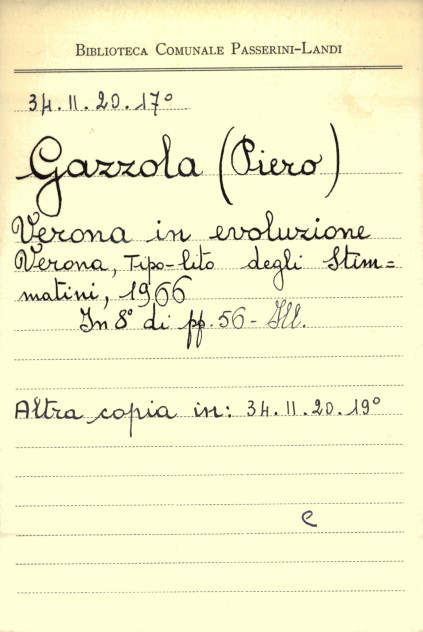 Biblioteca Comunale Passerini-Landi
34.II.20.17°
Gazzola (Piero)
Verona in evoluzione
Verona, Tipo-lito degli Stim=
matini, 1966
In 8° di pp. 56 - Ill.
Altra copia in: 34.II.20.19°
e